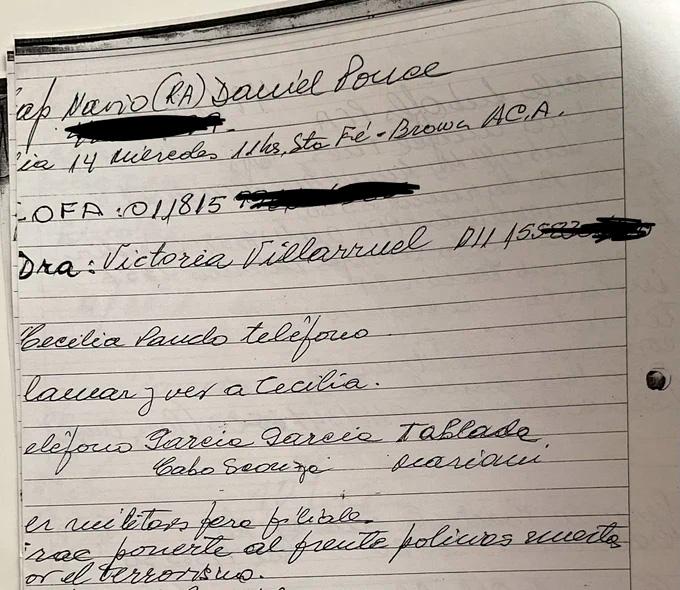 ap Navio (RA) Daniel Ponce
ia 14 Miercoles 11 hs, Sta Fé - Brown A.C.A.
COFA: 011815
Dra: Victoria Villarruel 011 155
Cecilia Pando teléfono
lamar y ver a Cecilia.
eléfono Garcia Garcia Tablada
Cabo
er militares para filiales
ponerte al frente policias muertos
or el terrorismo.